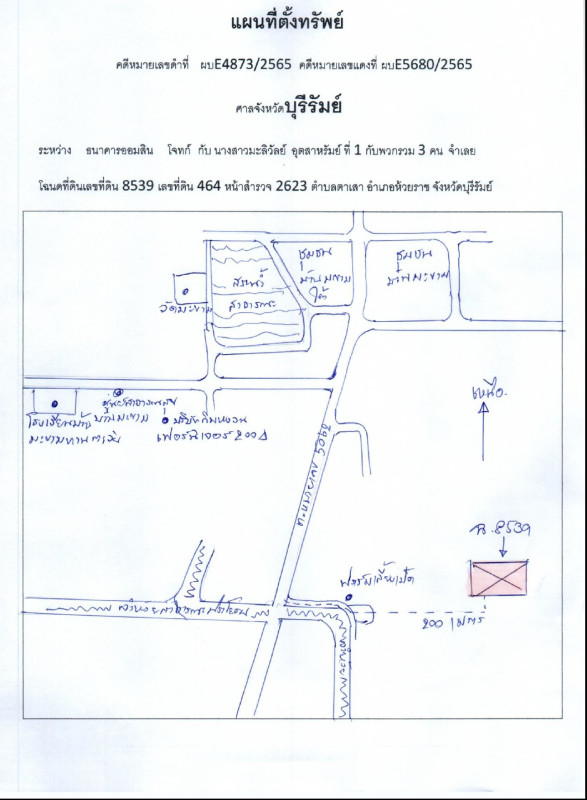 แผนที่ตั้งทรัพย์
คดีหมายเลขดำที่ ผบE4873/2565 คดีหมายเลขแดงที่ ผบE5680/2565
ศาลจังหวัดบุรีรัมย์
ระหว่าง ธนาคารออมสิน โจทก์ กับ นางสาวมะลิวัลย์ อุตสาหรัมย์ ที่ 1 กับพวกรวม 3 คน จำเลย
โฉนดที่ดินเลขที่ดิน 8539 เลขที่ดิน 464 หน้าสำรวจ 2623 ตำบลตาเสา อำเภอห้วยราช จังหวัดบุรีรัมย์
ชุมชน
บ้านมะขาม
ใต้
ชุมชน
บ้านมะขาม
สระน้ำ
สาธารณะ
วัดมะขาม
เหนือ
โรงเรียนบ้าน
บ้านมะขาม
เฟอร์นิเจอร์ 2004
ฉ.8539
ฟาร์มเลี้ยงเป็ด
200 เมตร